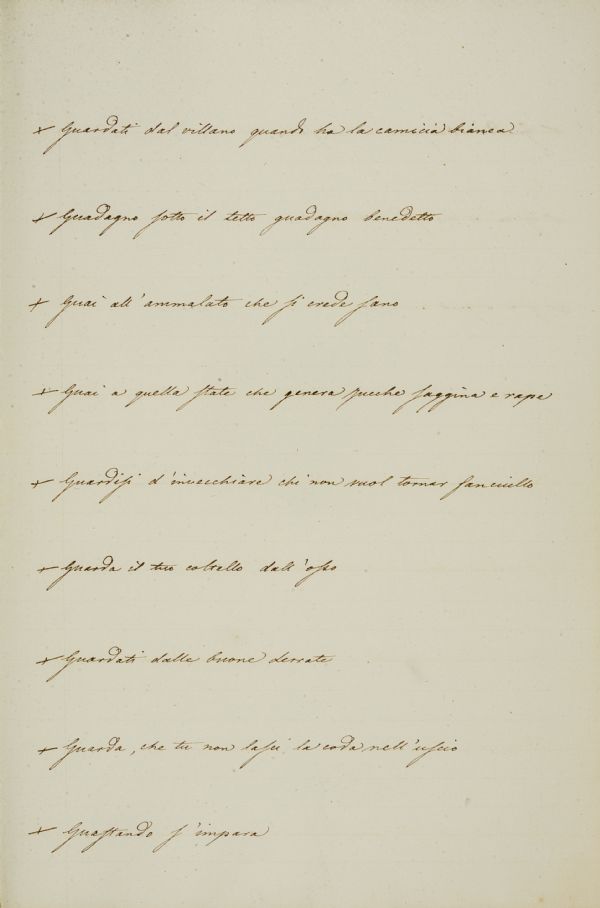 + Guardati dal villano quando ha la camicia bianca
+ Guadagno sotto il tetto guadagno benedetto
+ Guai all'ammalato che si crede sano
+ Guai a quella state che genera zucche saggina e rape
+ Guardisi d'invecchiare chi non vuol tornar fanciullo
+ Guarda il tuo coltello dall'osso
+ Guardati dalle buone derrate
+ Guarda, che tu non lasci la coda nell'uscio
+ Guastando s'impara